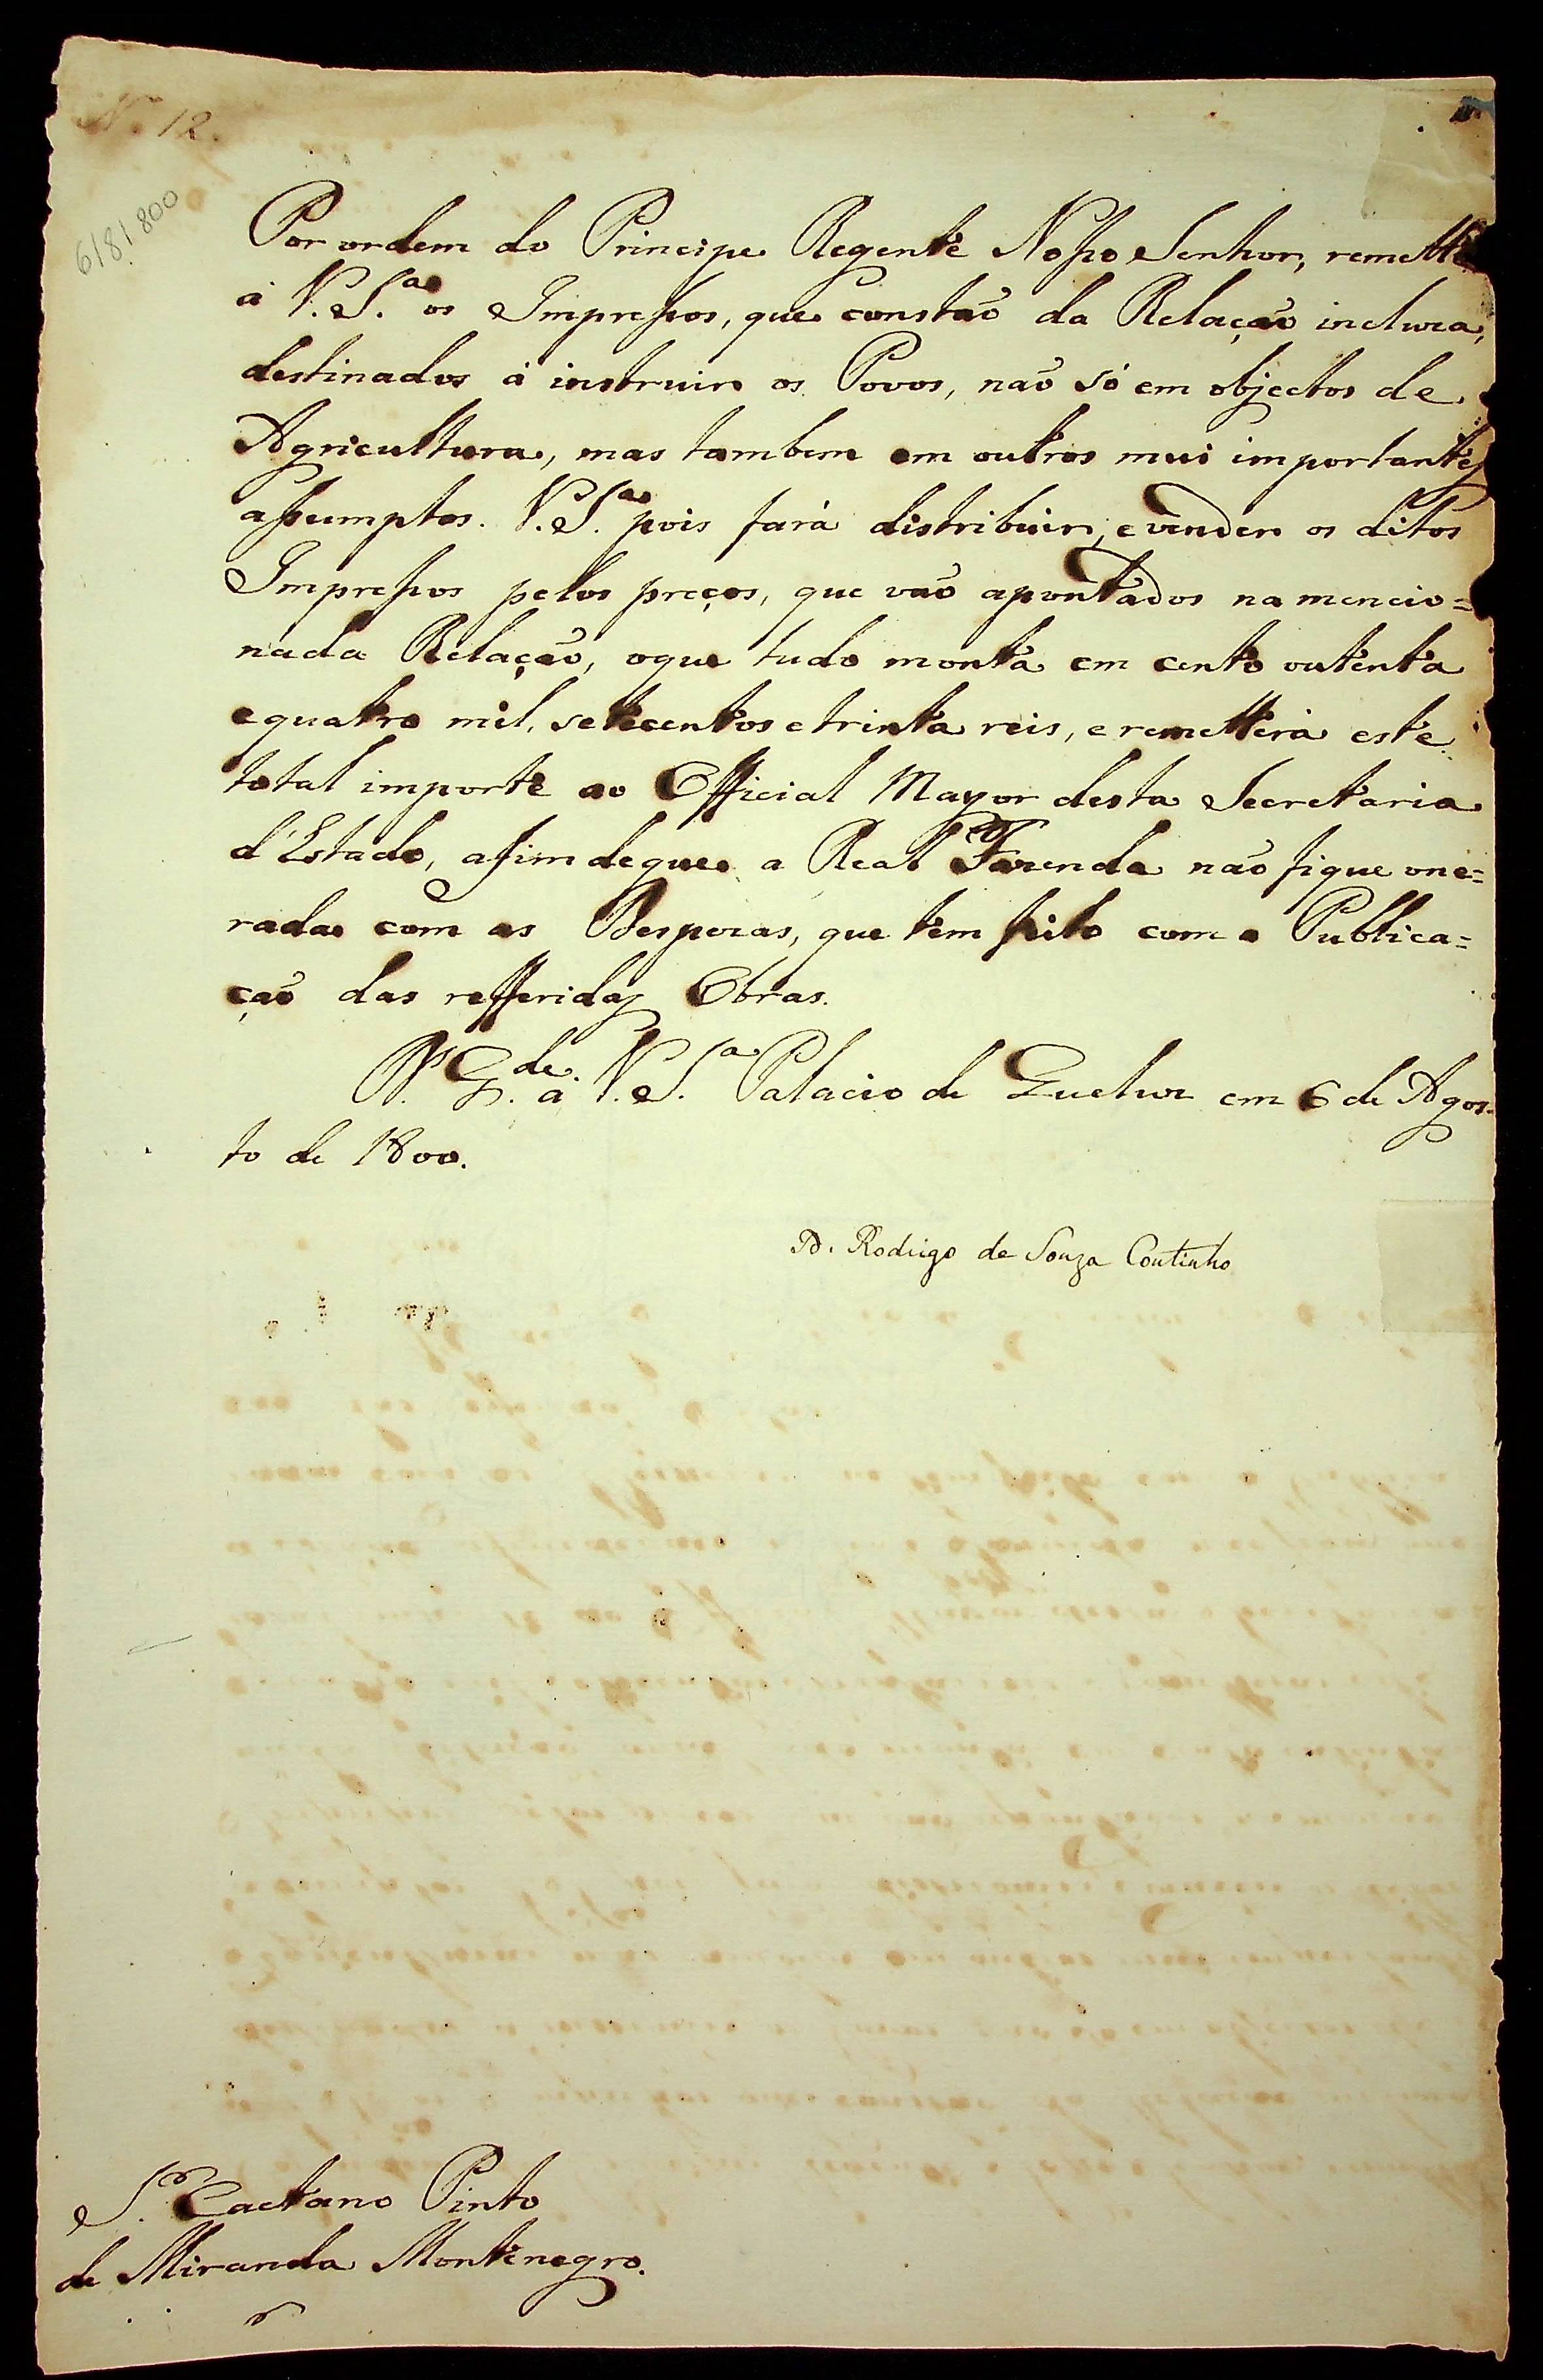 N.º 12.
6/8/1800
Por ordem do Principe Regente Nosso Senhor, remetto
a V. S.ª os Impressos, que constaõ da Relaçaõ incluza,
destinados á instruir os Povos, naõ só em objectos de
Agricultura, mas tambem em outros mui importantes
assumptos. V. S.ª pois fará distribuir, e vender os ditos
Impressos pelos preços, que vaõ apontados na mencio=
nada Relaçaõ, o que tudo monta em cento outenta
e quatro mil, setecentos e trinta reis, e remetterá este
total importe ao Official Mayor desta Secretaria
d'Estado, a fim de que a Real Fazenda naõ fique one=
rada com as Despezas, que tem feito com a Publica=
çaõ das refferidas Obras.
D.s G.de a V. S.ª Palacio de Queluz em 6 de Agos-
to de 1800.
D. Rodrigo de Souza Coutinho
S.r Caetano Pinto
de Miranda Montenegro.